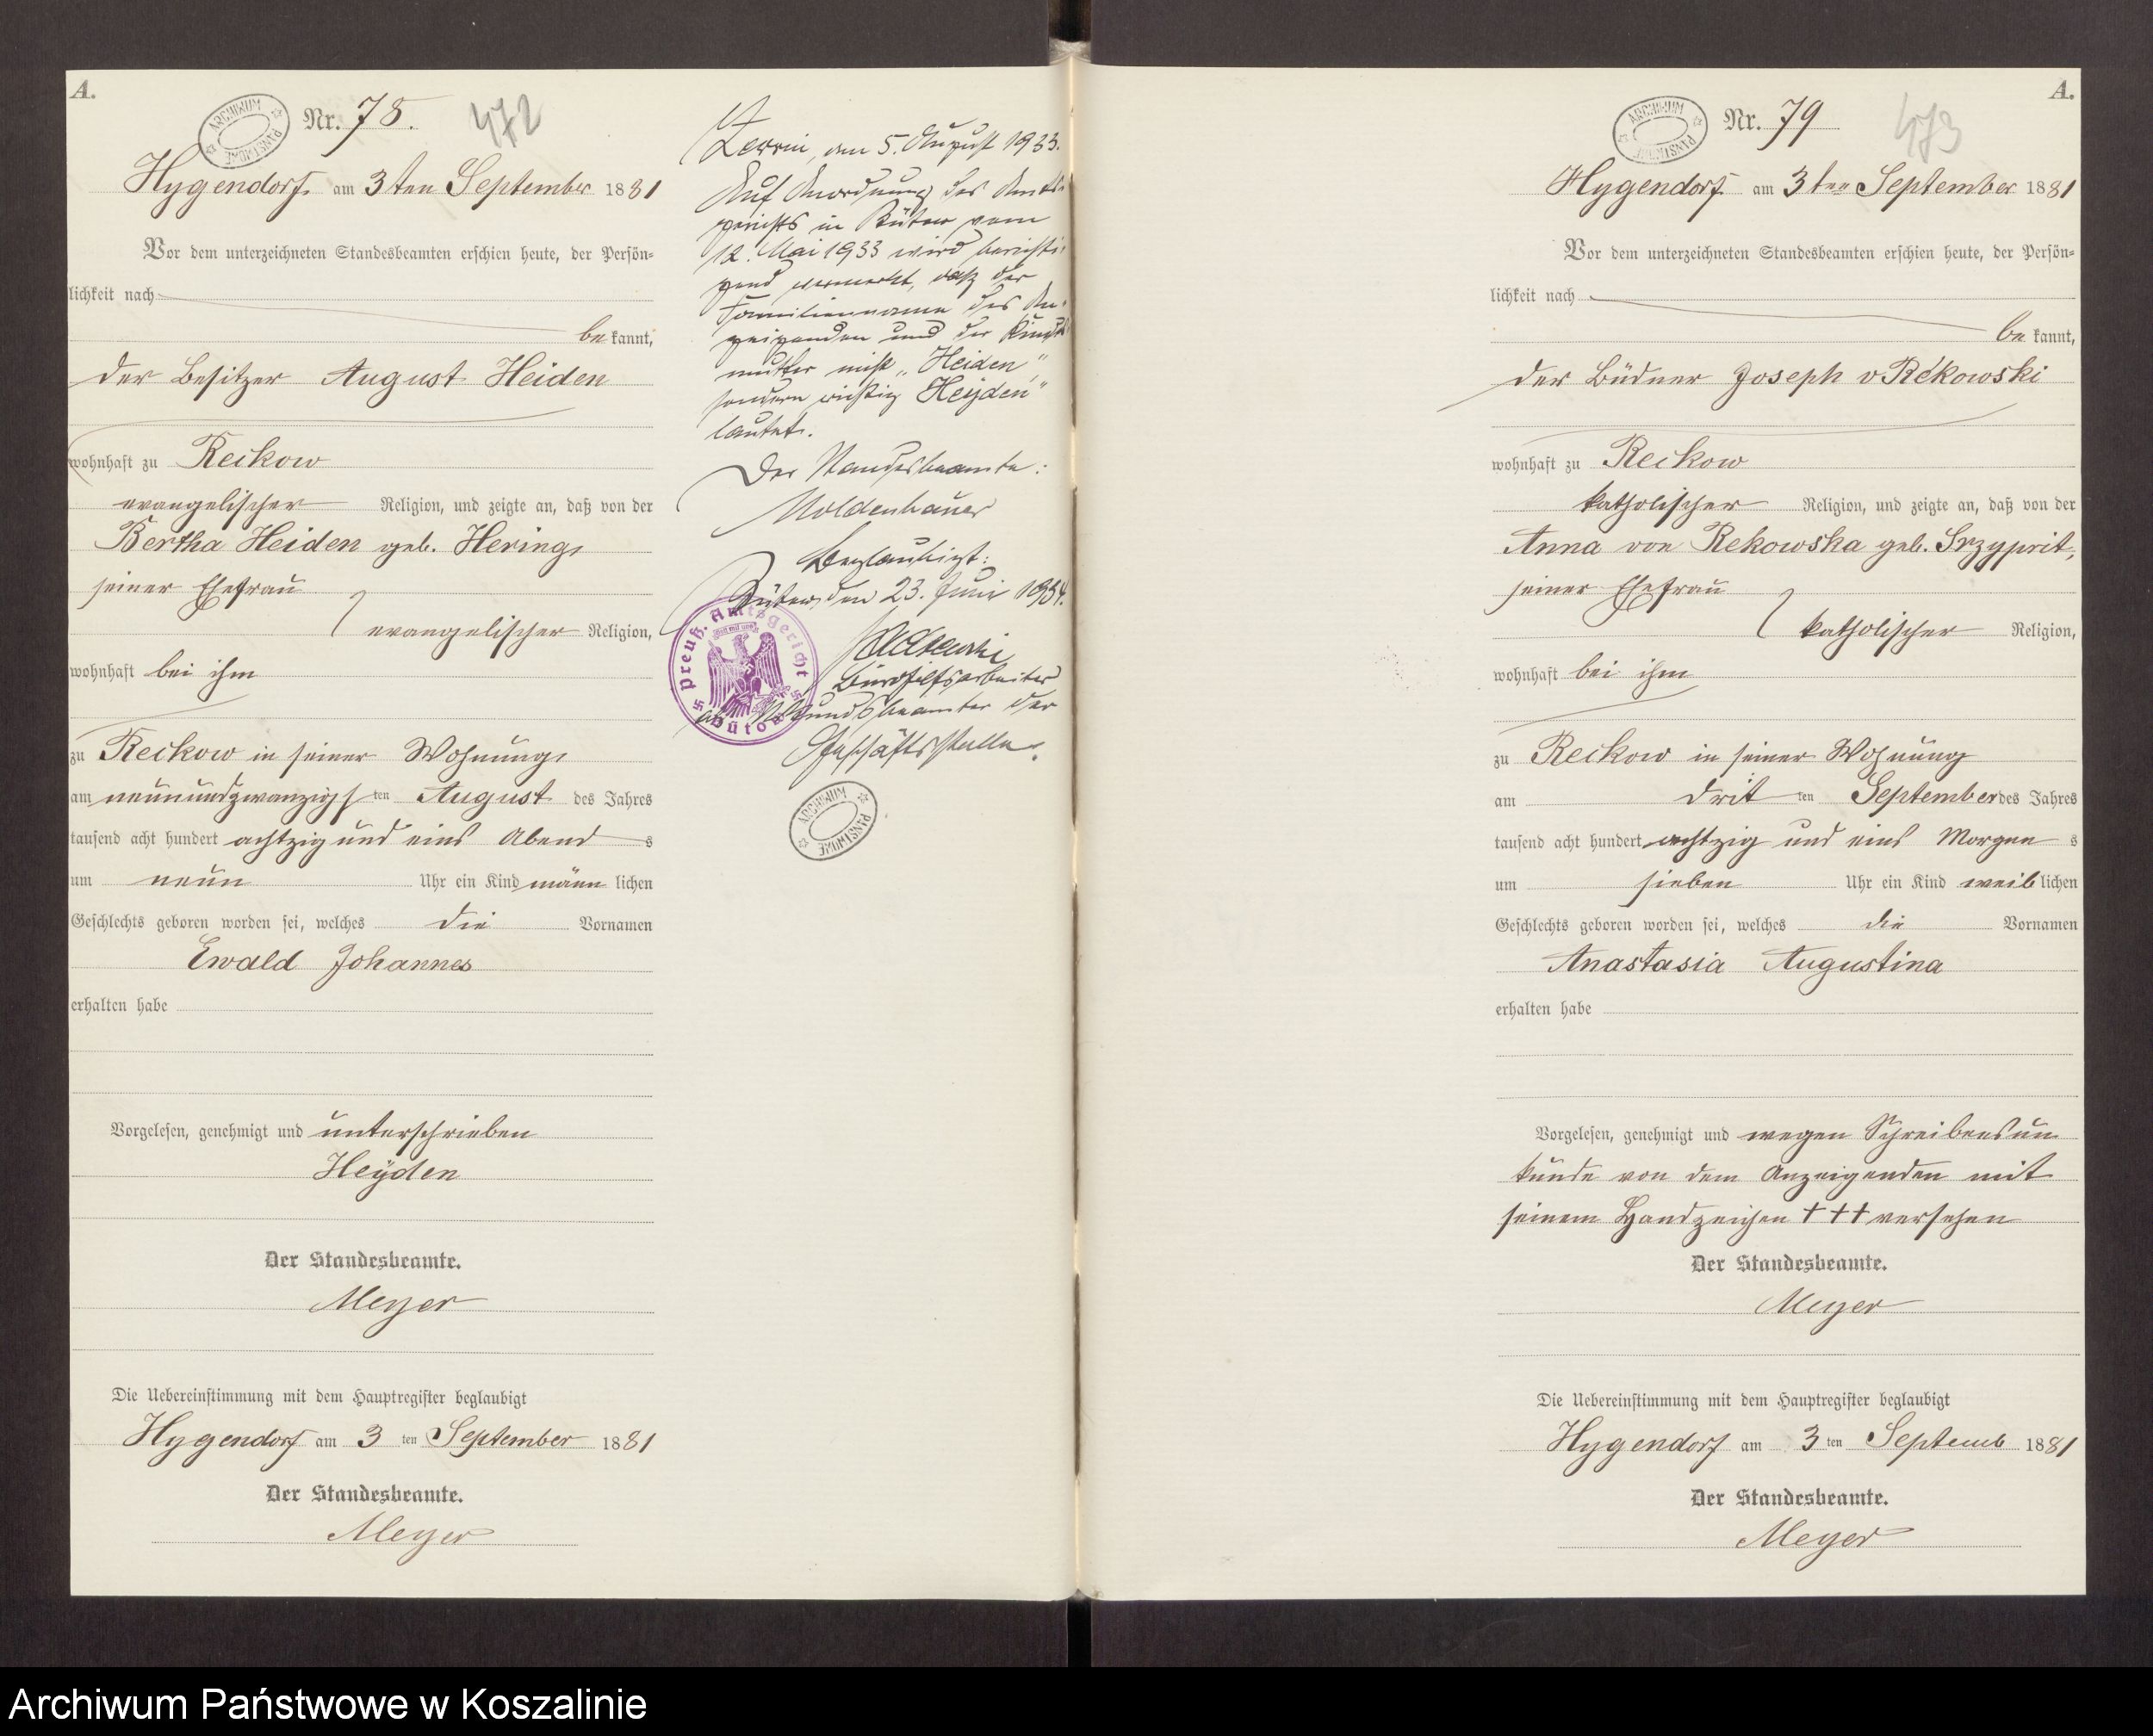 A.
Nr. 78.
472
ARCHIWUM PAŃSTWOWE
Hygendorf am 3ten September 1881
Vor dem unterzeichneten Standesbeamten erschien heute, der Persön-
lichkeit nach
be kannt,
der Besitzer August Heiden
wohnhaft zu Reckow
evangelischer Religion, und zeigte an, daß von der
Bertha Heiden geb. Hering,
seiner Ehefrau
evangelischer Religion,
wohnhaft bei ihm
zu Reckow in seiner Wohnung,
am neunundzwanzigsten August des Jahres
tausend acht hundert achtzig und eins Abend s
um neun Uhr ein Kind männ lichen
Geschlechts geboren worden sei, welches die Vornamen
Ewald Johannes
erhalten habe
Vorgelesen, genehmigt und unterschrieben
Heÿden
Der Standesbeamte.
Meyer
Die Uebereinstimmung mit dem Hauptregister beglaubigt
Hygendorf am 3 ten September 1881
Der Standesbeamte.
Meyer
am 5. August 1933.
Auf Anordnung des Amts-
gerichts in Bütow vom
12. Mai 1933 wird berichti-
gend vermerkt, daß der
Familienname des An-
zeigenden und der Kindes-
mutter nicht „Heiden",
sondern richtig „Heÿden"
lautet.
Der Standesbeamte:
Moldenhauer
Beglaubigt:
Bütow, den 23. Juni 1934.
Bürohilfsarbeiter
als Urkundsbeamter der
Geschäftsstelle.
Preuß. Amtsgericht Bütow
ARCHIWUM PAŃSTWOWE
A.
Nr. 79
473
ARCHIWUM PAŃSTWOWE
Hygendorf am 3ten September 1881
Vor dem unterzeichneten Standesbeamten erschien heute, der Persön-
lichkeit nach
be kannt,
der Büdner Joseph v Rekowski
wohnhaft zu Reckow
katholischer Religion, und zeigte an, daß von der
Anna von Rekowska geb.
seiner Ehefrau
katholischer Religion,
wohnhaft bei ihm
zu Reckow in seiner Wohnung
am drit ten September des Jahres
tausend acht hundert achtzig und eins Morgen s
um sieben Uhr ein Kind weib lichen
Geschlechts geboren worden sei, welches die Vornamen
Anastasia Augustina
erhalten habe
Vorgelesen, genehmigt und wegen Schreibensun
kunde von dem Anzeigenden mit
seinem Handzeichen +++ versehen
Der Standesbeamte.
Meyer
Die Uebereinstimmung mit dem Hauptregister beglaubigt
Hygendorf am 3 ten Septemb 1881
Der Standesbeamte.
Meyer
Archiwum Państwowe w Koszalinie